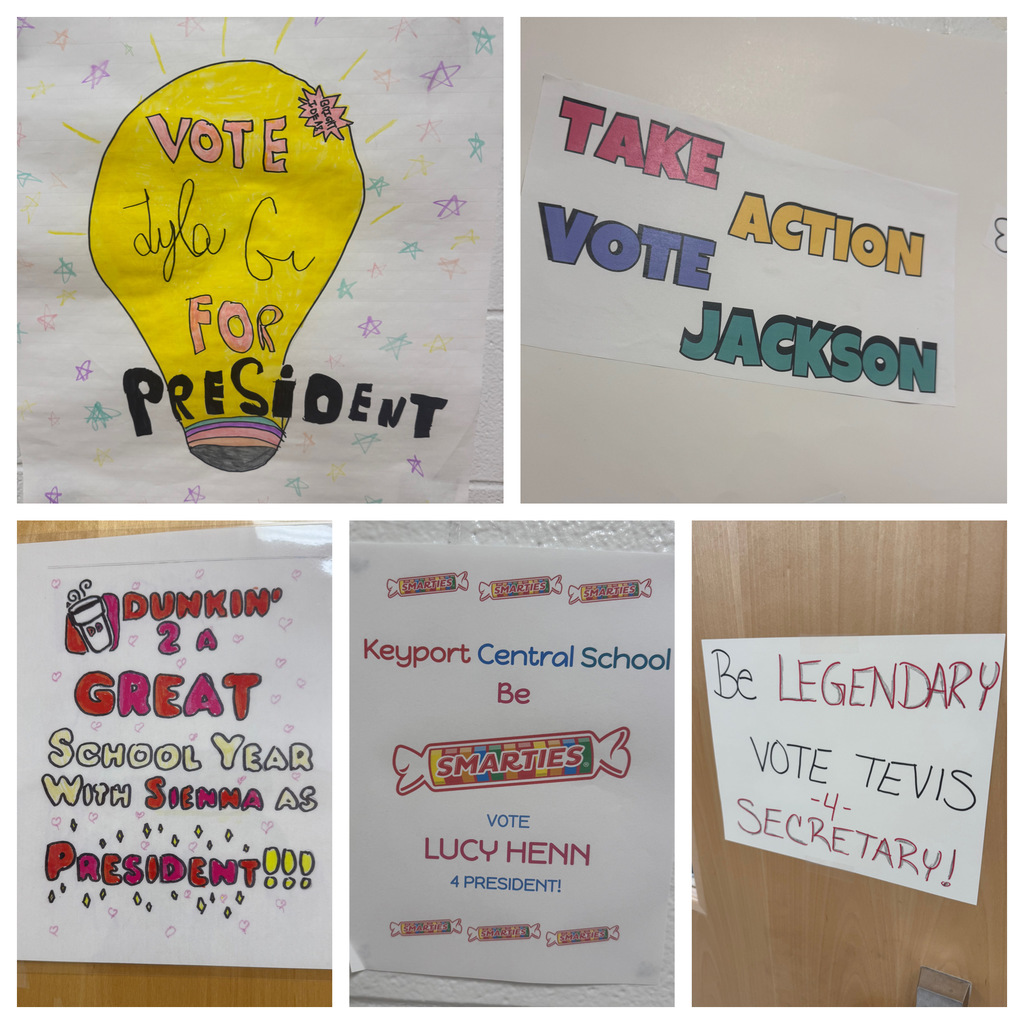 VOTE
BRIGHT
IDEAS!
Lyla G
FOR
PRESiDENT
TAKE
ACTION
VOTE
JACKSON
DUNKIN'
2 A
GREAT
SCHOOL YEAR
WITH SIENNA AS
PRESIDENT!!!
DD
SMARTIES SMARTIES SMARTIES
Keyport Central School
Be
SMARTIES
VOTE
LUCY HENN
4 PRESIDENT!
SMARTIES SMARTIES SMARTIES
Be LEGENDARY
VOTE TEVIS
-4-
SECRETARY!